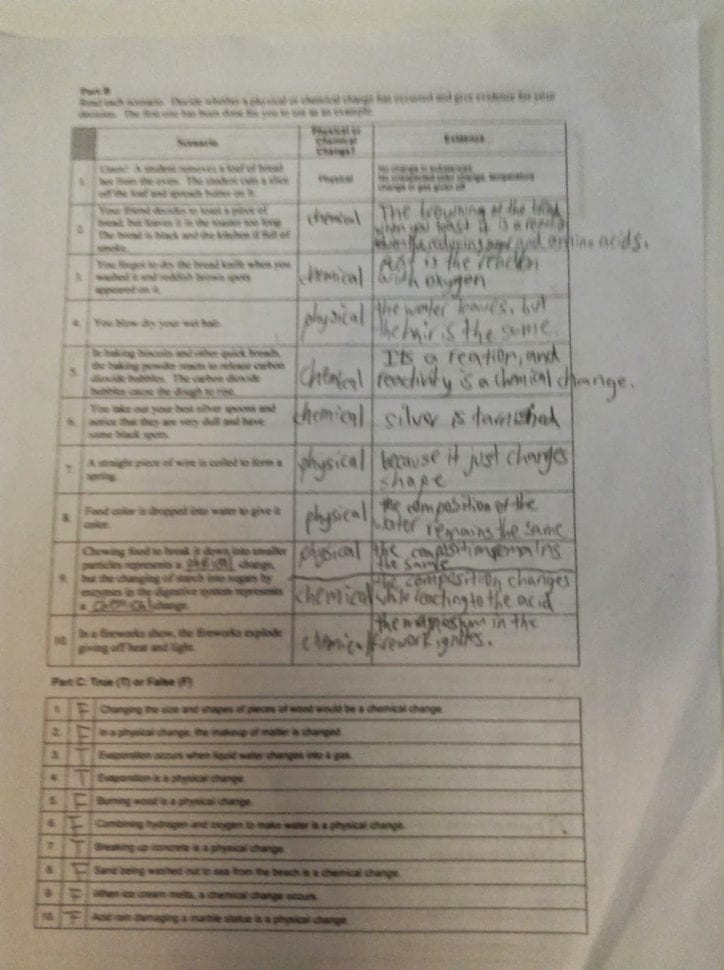 Part B
Read each scenario. Decide whether a physical or chemical change has occurred and give evidence for your
decision. The first one has been done for you to use as an example.
Scenario
Physical or
Chemical
Change?
Evidence
1. Umm! A student removes a loaf of bread
hot from the oven. The student cuts a slice
off the loaf and spreads butter on it.
Physical
No change in substances
No unexpected color change, temperature
change or gas given off
2. Your friend decides to toast a piece of
bread, but leaves it in the toaster too long.
The bread is black and the kitchen if full of
smoke.
chemical
The browning of the bread
when you toast it is a
sugar and amino acids.
3. You forgot to dry the bread knife when you
washed it and reddish brown spots
appeared on it.
chemical
rust is the reaction
with oxygen
4. You blow dry your wet hair.
physical
the water leaves, but
the hair is the same.
5. In baking biscuits and other quick breads,
the baking powder reacts to release carbon
dioxide bubbles. The carbon dioxide
bubbles cause the dough to rise.
Chemical
Its a reation, and
reactivity is a chemical change.
6. You take out your best silver spoons and
notice that they are very dull and have
some black spots.
chemical
silver is tarnished
7. A straight piece of wire is coiled to form a
spring.
physical
because it just changes
shape
8. Food color is dropped into water to give it
color.
physical
the composition of the
water remains the same
9. Chewing food to break it down into smaller
particles represents a change,
but the changing of starch into sugars by
enzymes in the digestive system represents
a change.
physical
the composition remains
the same
chemical
the composition changes
while reacting to the acid
10. In a fireworks show, the fireworks explode
giving off heat and light.
chemical
the magnesium in the
firework ignites.
Part C: True (T) or False (F)
1. F Changing the size and shapes of pieces of wood would be a chemical change.
2. F In a physical change, the makeup of matter is changed.
3. T Evaporation occurs when liquid water changes into a gas.
4. T Evaporation is a physical change.
5. F Burning wood is a physical change.
6. F Combining hydrogen and oxygen to make water is a physical change.
7. T Breaking up concrete is a physical change.
8. F Sand being washed out to sea from the beach is a chemical change.
9. F When ice cream melts, a chemical change occurs.
10. F Acid rain damaging a marble statue is a physical change.